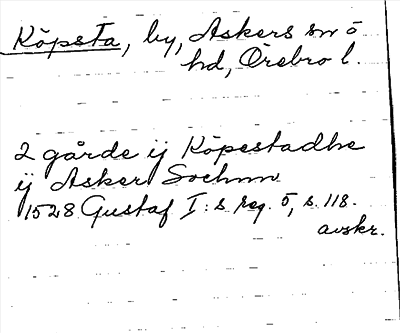 Köpsta, by, Askers sn o
hd, Örebro l.
2 gårde ij Köpestadhe
ij Asker Sochnn
1528 Gustaf I:s reg. 5, s. 118.
avskr.